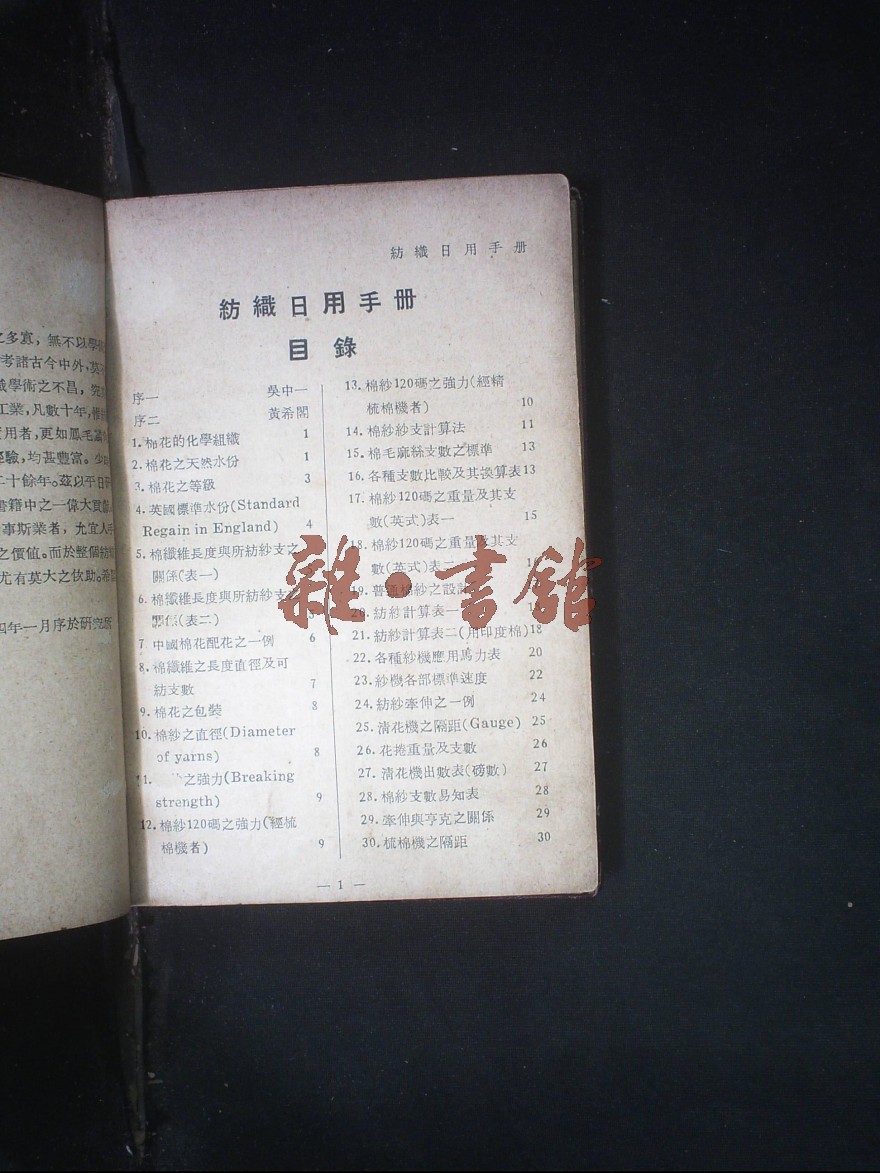 之多寡，無不以學術
考諸古今中外，莫不
織學術之不昌，究
工業，凡數十年，
用者，更如鳳毛
經驗，均甚豐富。
二十餘年。茲以平日研
書籍中之一偉大貢
事斯業者，允宜人手
之價值。而於整個紡
尤有莫大之佽助。希
四年一月序於研究所
紡織日用手册
紡織日用手册
目錄
序一 吳中一
序二 黃希閣
1. 棉花的化學組織 1
2. 棉花之天然水份 1
3. 棉花之等級 3
4. 英國標準水份(Standard
Regain in England) 4
5. 棉纖維長度與所紡紗支之
關係(表一)
6. 棉纖維長度與所紡紗支
關係(表二)
7 中國棉花配花之一例 6
8. 棉纖維之長度直徑及可
紡支數 7
9. 棉花之包裝 8
10. 棉紗之直徑(Diameter
of yarns) 8
11. 之強力(Breaking
strength) 9
12. 棉紗120碼之強力(經梳
棉機者) 9
13. 棉紗120碼之強力(經精
梳棉機者) 10
14. 棉紗紗支計算法 11
15. 棉毛麻絲支數之標準 13
16. 各種支數比較及其換算表 13
17. 棉紗120碼之重量及其支
數(英式)表一 15
18. 棉紗120碼之重量及其支
數(英式)表二
19. 普通棉紗之設計
20. 紡紗計算表一
21. 紡紗計算表二(用印度棉) 18
22. 各種紗機應用馬力表 20
23. 紗機各部標準速度 22
24. 紡紗牽伸之一例 24
25. 清花機之隔距(Gauge) 25
26. 花捲重量及支數 26
27. 清花機出數表(磅數) 27
28. 棉紗支數易知表 28
29. 牽伸與亨克之關係 29
30. 梳棉機之隔距 30
— 1 —
雜·書館